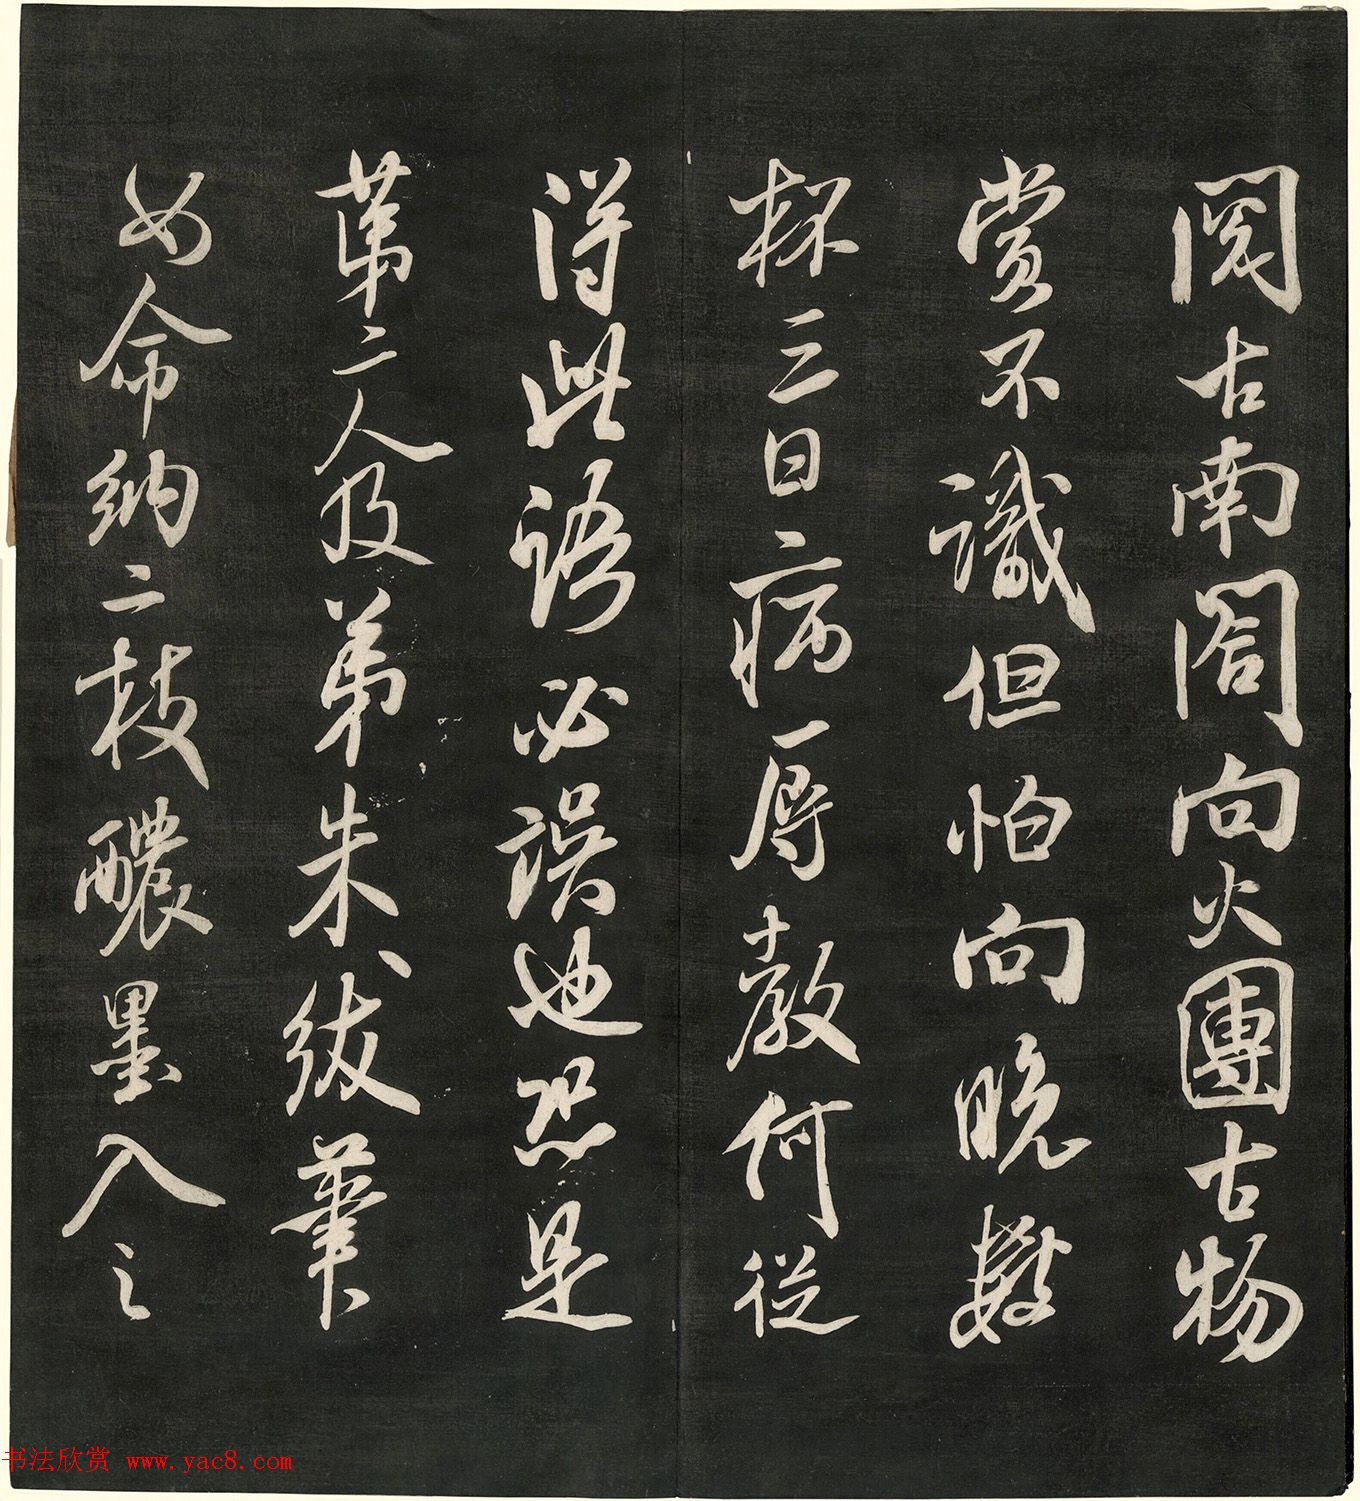 閱古南閣向火團古物
賞不識但怕向晚數
杯三日病辱教何從
得此語必誤也恐是
第二人及弟朱紱筆
如命納二枝醲墨入之
书法欣赏 www.yac8.com